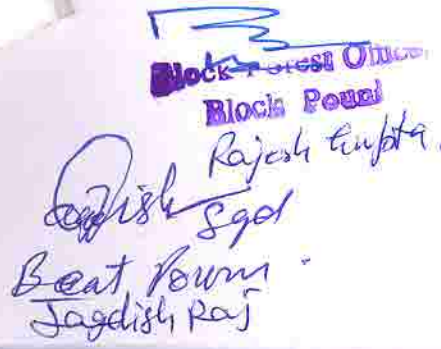 Block Forest Officer
Block Pouni
Rajesh Gupta
Jagdish
Sgd
Beat Pouni
Jagdish Raj